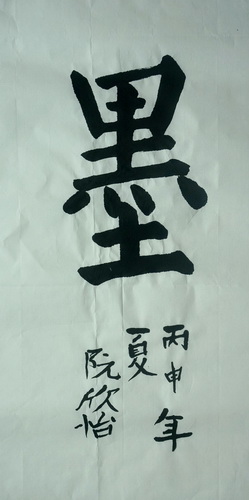 墨
丙申年
夏
阮欣怡